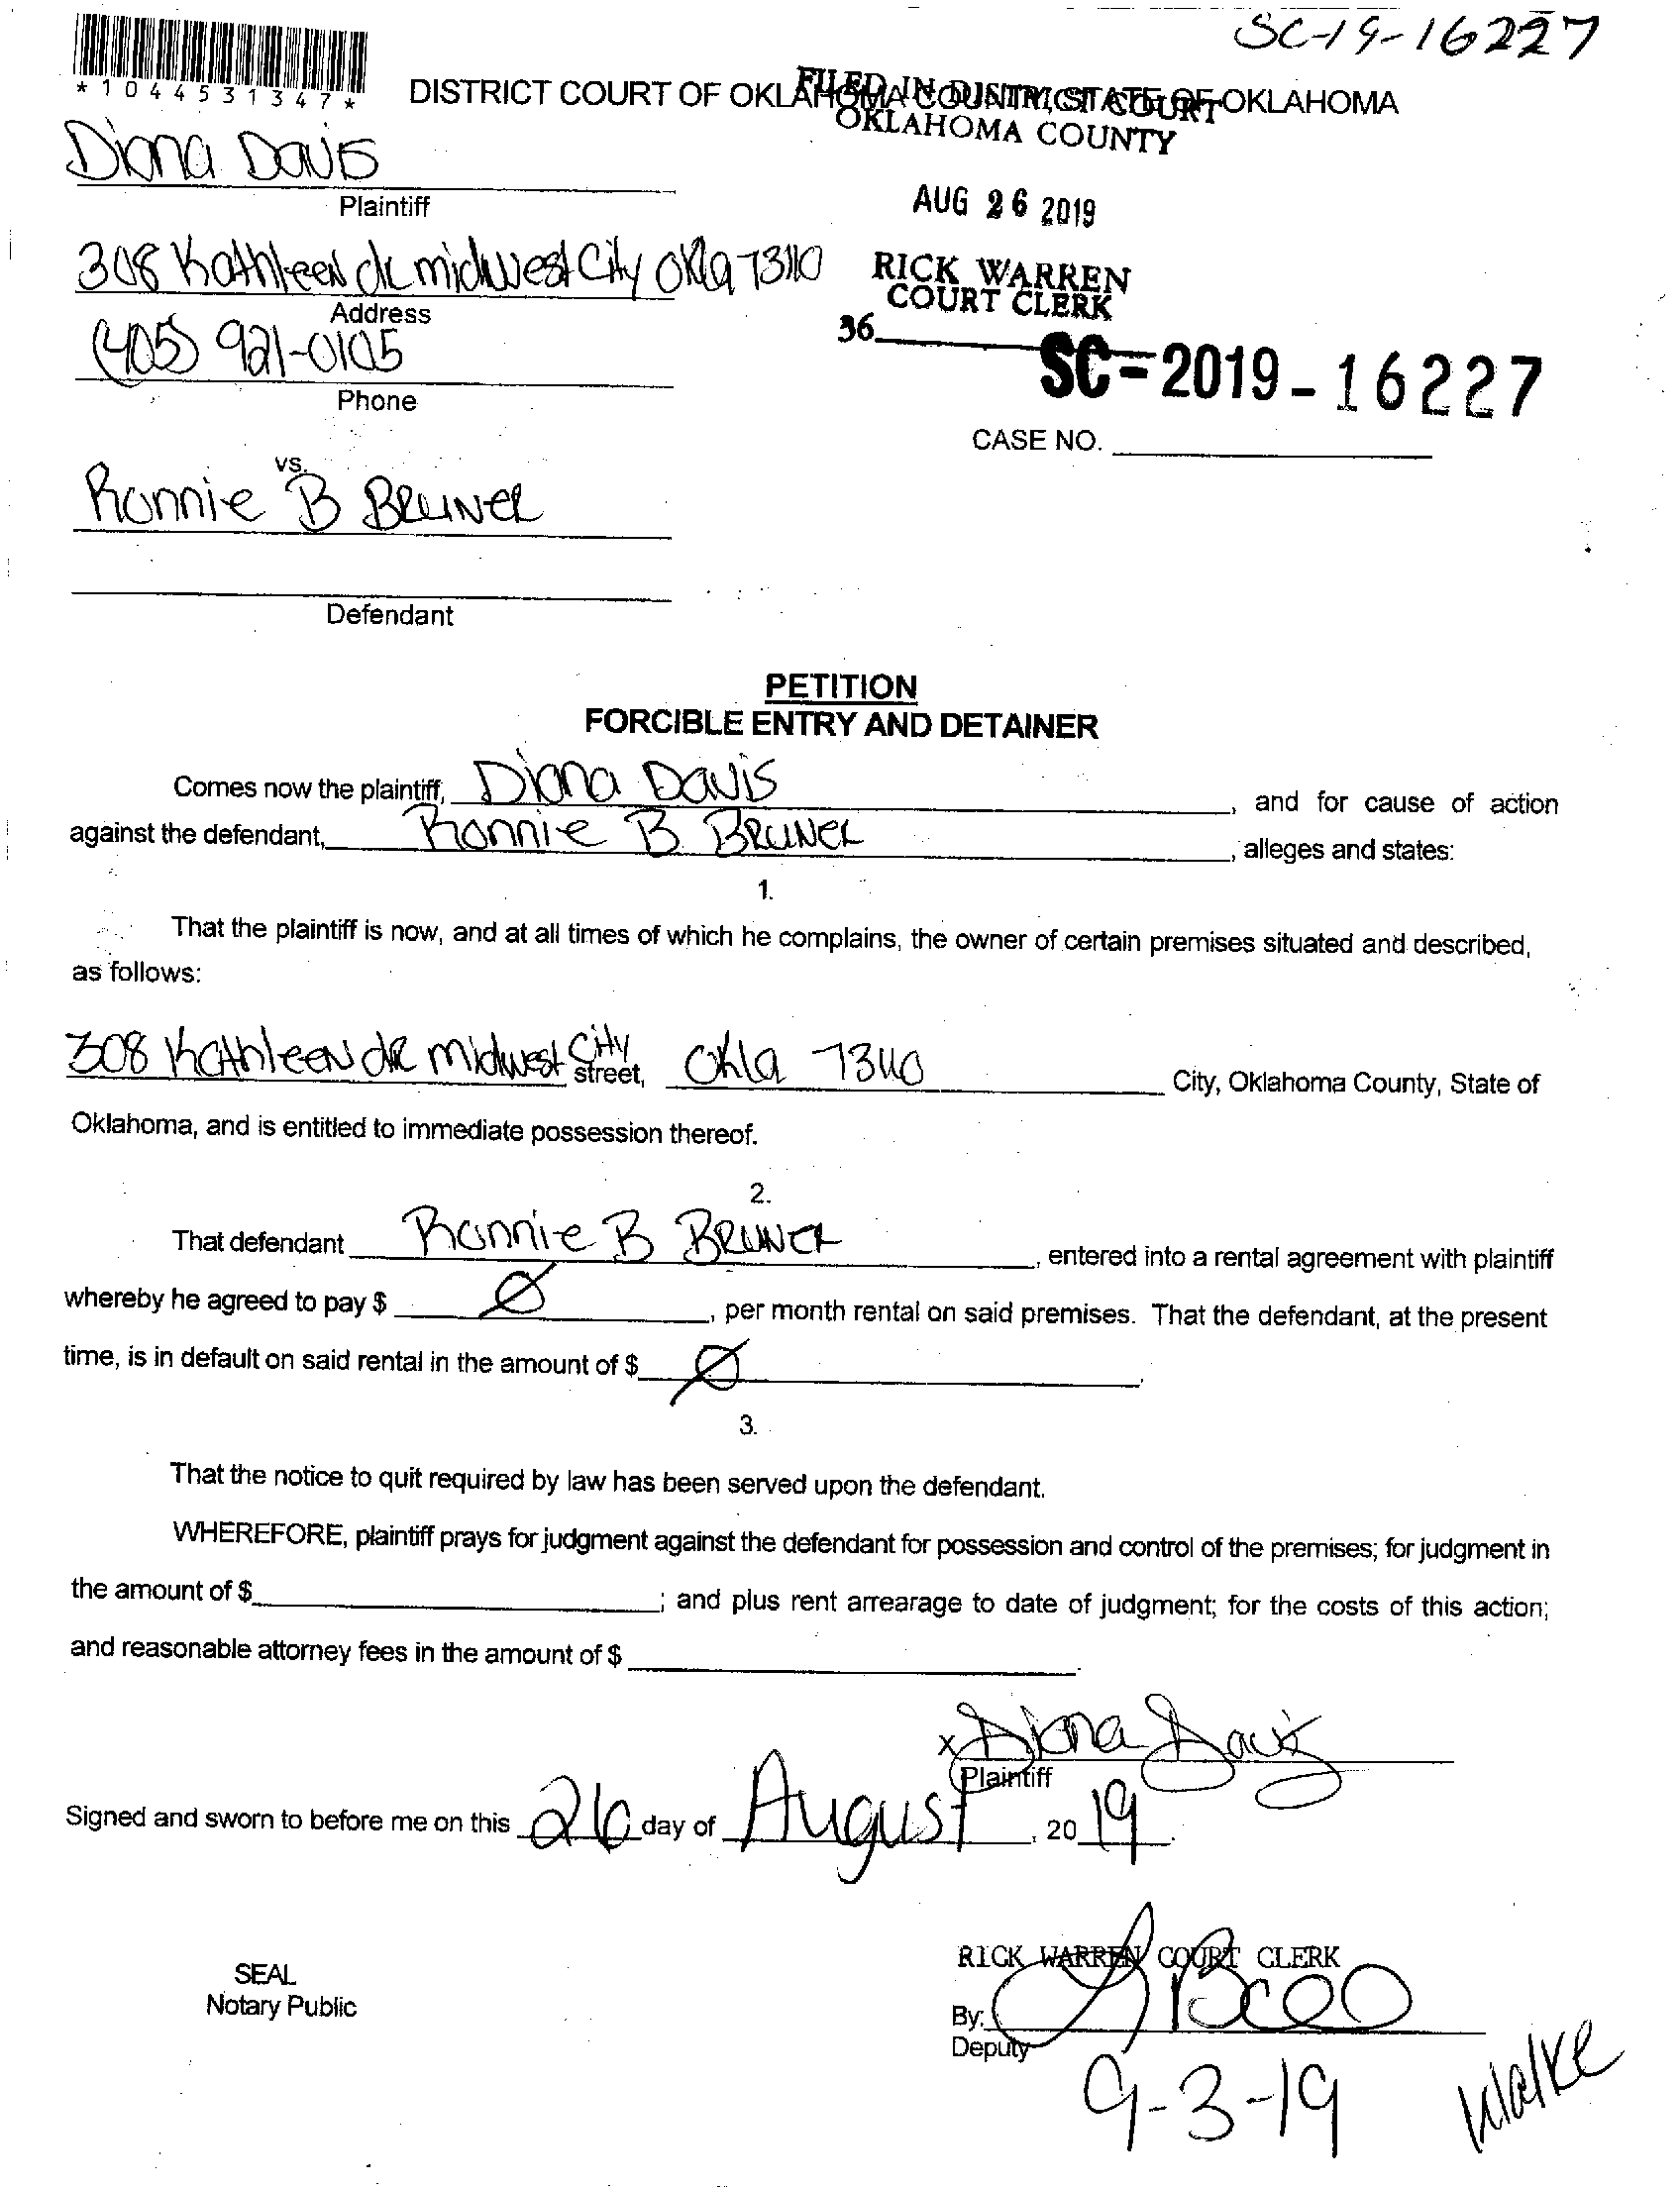 SC-19-16227
*1044531347*
DISTRICT COURT OF OKLAHOMA COUNTY, STATE OF OKLAHOMA
FILED IN DISTRICT COURT
OKLAHOMA COUNTY
Diana Davis
Plaintiff
AUG 26 2019
308 Kathleen dr midwest City Okla 73110
RICK WARREN
COURT CLERK
Address
36
(405) 921-0105
SC-2019-16227
Phone
CASE NO.
vs.
Ronnie B Bruner
Defendant
PETITION
FORCIBLE ENTRY AND DETAINER
Comes now the plaintiff, Diana Davis, and for cause of action
against the defendant, Ronnie B. Bruner, alleges and states:
1.
That the plaintiff is now, and at all times of which he complains, the owner of certain premises situated and described,
as follows:
308 Kathleen dr Midwest City street, Okla 73110 City, Oklahoma County, State of
Oklahoma, and is entitled to immediate possession thereof.
2.
That defendant Ronnie B Bruner, entered into a rental agreement with plaintiff
whereby he agreed to pay $ Ø, per month rental on said premises. That the defendant, at the present
time, is in default on said rental in the amount of $ Ø.
3.
That the notice to quit required by law has been served upon the defendant.
WHEREFORE, plaintiff prays for judgment against the defendant for possession and control of the premises; for judgment in
the amount of $; and plus rent arrearage to date of judgment; for the costs of this action;
and reasonable attorney fees in the amount of $.
x Diana Davis
Plaintiff
Signed and sworn to before me on this 26 day of August, 2019.
RICK WARREN COURT CLERK
SEAL
Notary Public
By:
Deputy
9-3-19
Walke